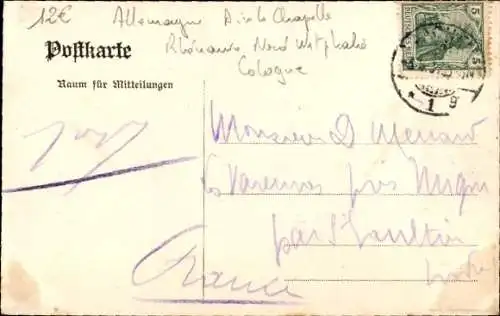 12€ Allemagne Aix la Chapelle
Rhénanie Nord Westphalie
Cologne
Postkarte
Raum für Mitteilungen
5 5
1 g
Monsieur D Menard
Les Varennes près
par St Gaultier
France